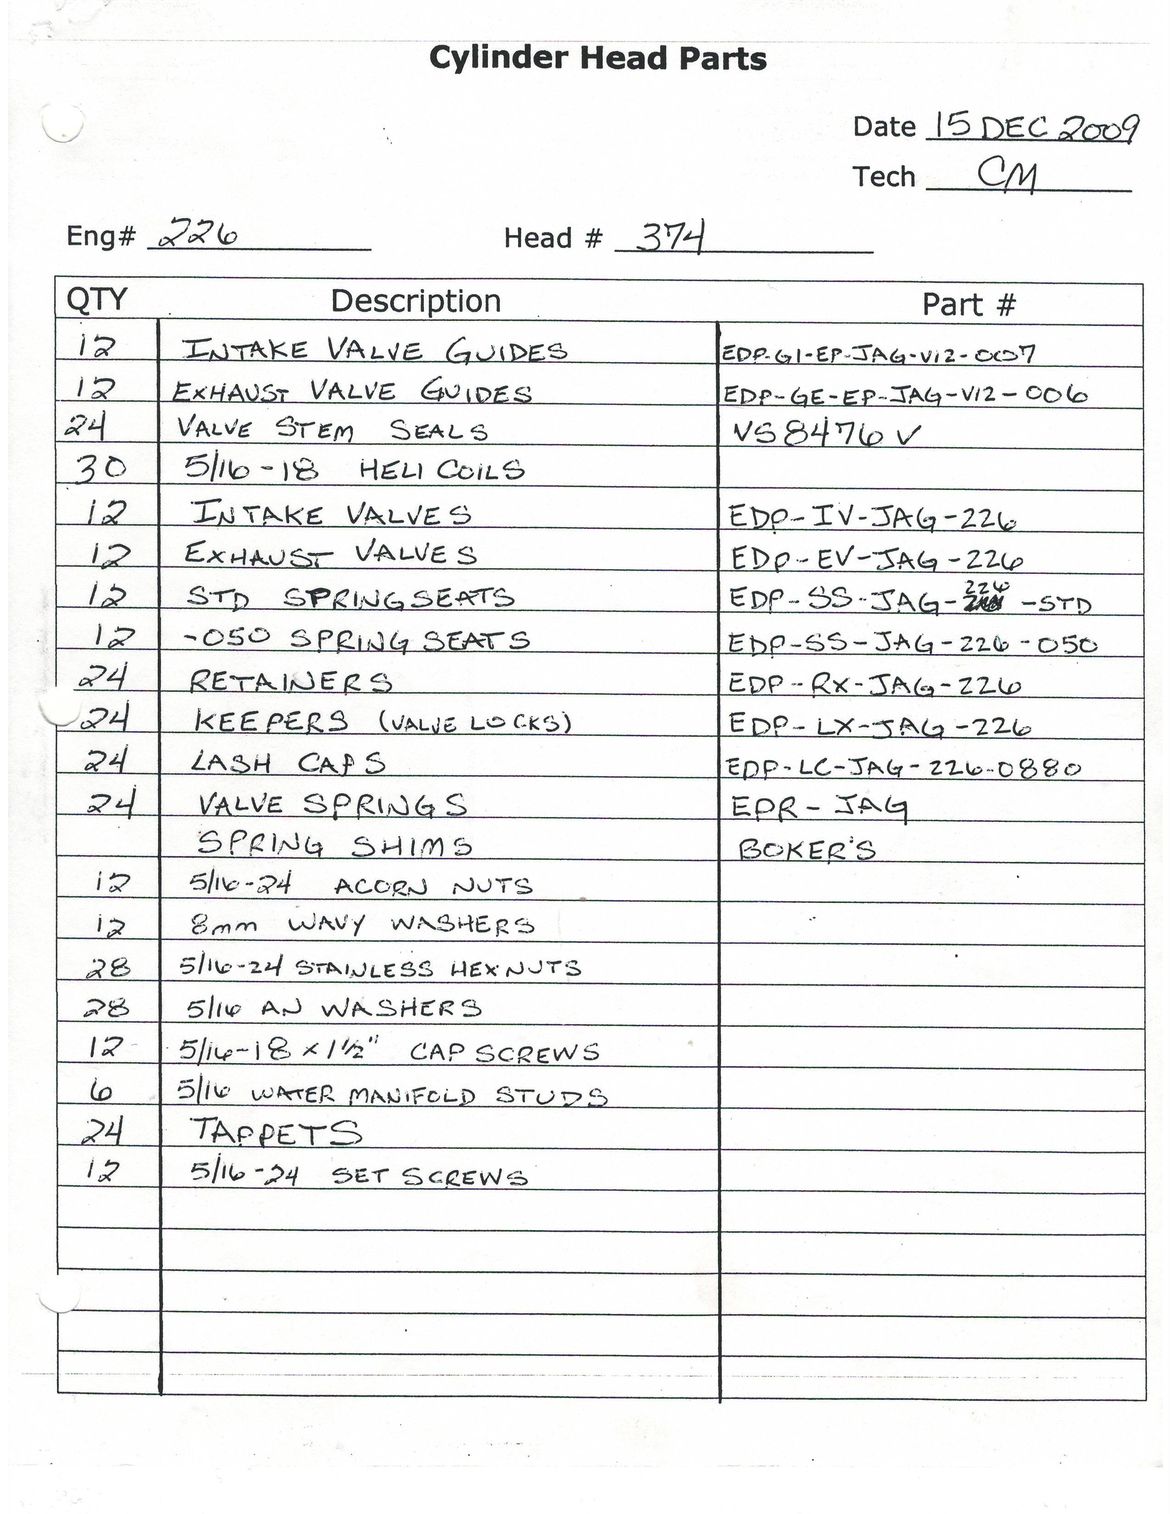 Cylinder Head Parts
Date 15 DEC 2009
Tech CM
Eng# 226 Head # 374
QTY Description Part #
12 INTAKE VALVE GUIDES EDP-GI-EP-JAG-V12-007
12 EXHAUST VALVE GUIDES EDP-GE-EP-JAG-V12-006
24 VALVE STEM SEALS VS8476V
30 5/16-18 HELI COILS
12 INTAKE VALVES EDP-IV-JAG-226
12 EXHAUST VALVES EDP-EV-JAG-226
12 STD SPRING SEATS EDP-SS-JAG-226-STD
12 -050 SPRING SEATS EDP-SS-JAG-226-050
24 RETAINERS EDP-RX-JAG-226
24 KEEPERS (VALVE LOCKS) EDP-LX-JAG-226
24 LASH CAPS EDP-LC-JAG-226-0880
24 VALVE SPRINGS EPR-JAG
SPRING SHIMS BOKER'S
12 5/16-24 ACORN NUTS
12 8mm WAVY WASHERS
28 5/16-24 STAINLESS HEX NUTS
28 5/16 AN WASHERS
12 5/16-18 x 1 1/2" CAP SCREWS
6 5/16 WATER MANIFOLD STUDS
24 TAPPETS
12 5/16-24 SET SCREWS